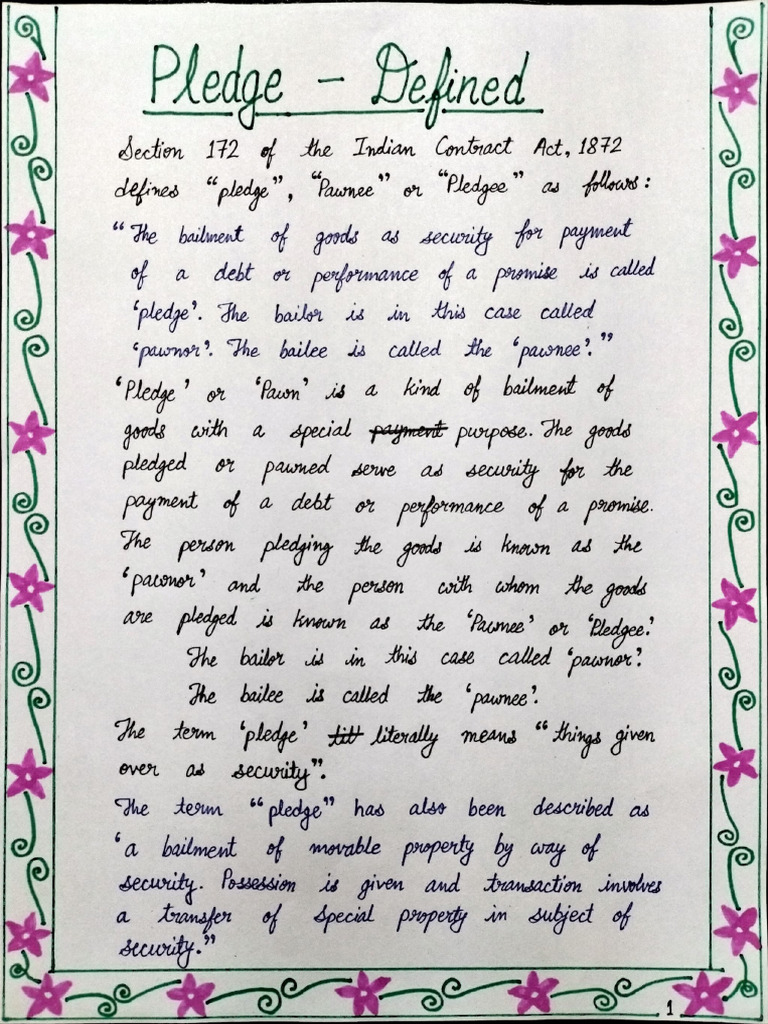 Pledge - Defined
Section 172 of the Indian Contract Act, 1872
defines "pledge", "Pawnee" or "Pledgee" as follows:
"The bailment of goods as security for payment
of a debt or performance of a promise is called
'pledge'. The bailor is in this case called
'pawnor'. The bailee is called the 'pawnee'."
'Pledge' or 'Pawn' is a kind of bailment of
goods with a special payment purpose. The goods
pledged or pawned serve as security for the
payment of a debt or performance of a promise.
The person pledging the goods is known as the
'pawnor' and the person with whom the goods
are pledged is known as the 'Pawnee' or 'Pledgee.'
The bailor is in this case called 'pawnor'.
The bailee is called the 'pawnee'.
The term 'pledge' litt literally means "things given
over as security".
The term "pledge" has also been described as
'a bailment of movable property by way of
security. Possession is given and transaction involves
a transfer of special property in subject of
security."
1